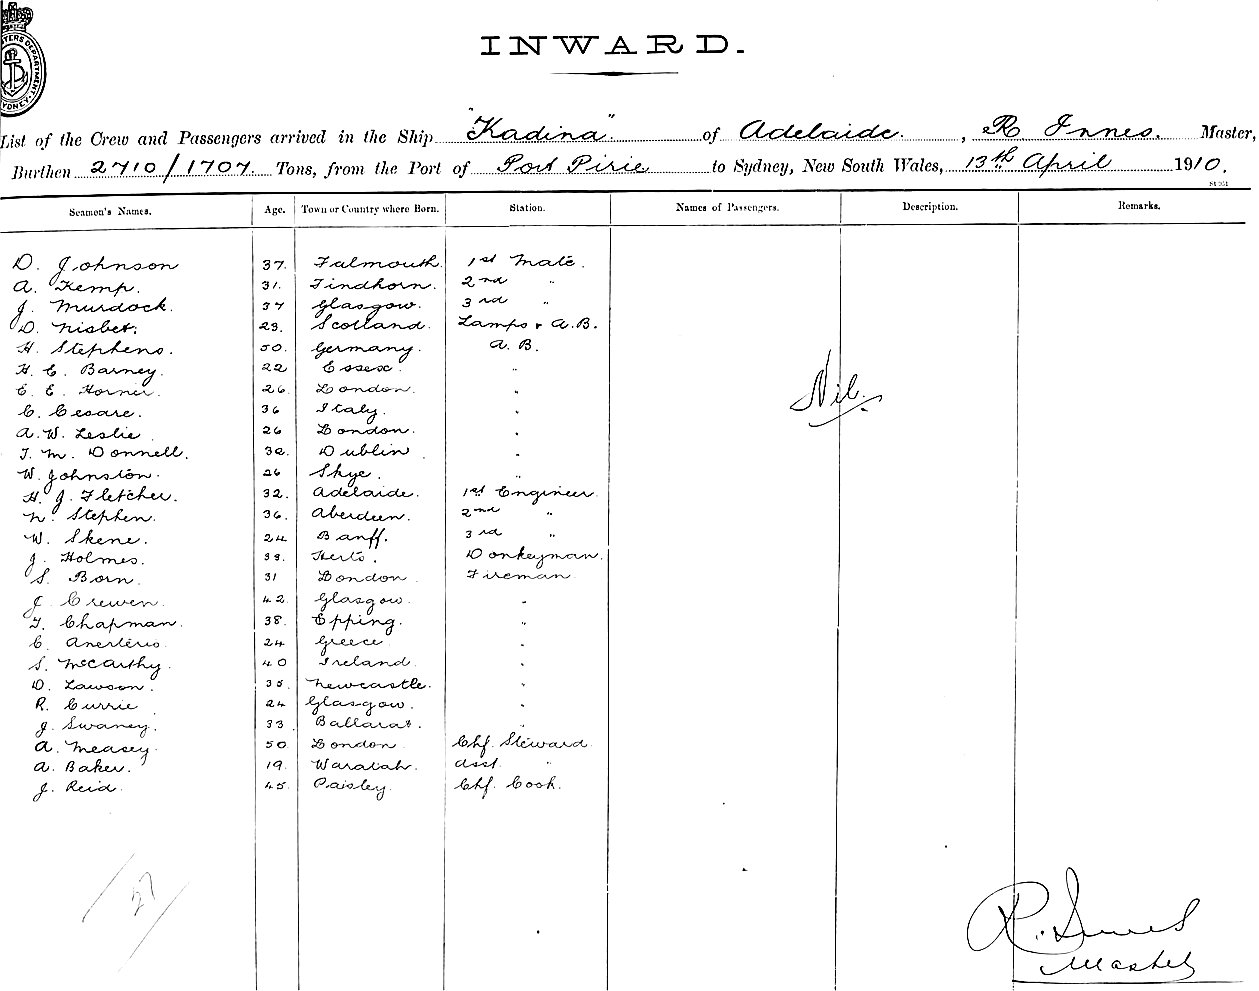 INWARD.
List of the Crew and Passengers arrived in the Ship "Kadina" of Adelaide, R Innes. Master,
Burthen 2710/1707 Tons, from the Port of Port Pirie to Sydney, New South Wales, 13th April 1910.
Seamen's Names. Age. Town or Country where Born. Station. Names of Passengers. Description. Remarks.
D. Johnson 37. Falmouth. 1st Mate.
A. Kemp. 31. Findhorn. 2nd "
J. Murdock. 37 Glasgow. 3rd "
D. Nisbet. 23. Scotland. Lamps & A.B.
H. Stephens. 50. Germany. A.B.
H. C. Barney. 22 Essex. "
E. E. Horner. 26 London. "
C. Cesare. 36 Italy. "
Nil.
A. W. Leslie. 26 London. "
T. M. Donnell. 32. Dublin. "
W. Johnston. 26 Skye. "
H. J. Fletcher. 32. Adelaide. 1st Engineer.
N. Stephen. 36. Aberdeen. 2nd "
W. Skene. 24 Banff. 3rd "
J. Holmes. 38. Herts. Donkeyman.
S. Born. 31 London Fireman
J. Crewen. 42. Glasgow. "
F. Chapman. 38. Epping. "
C. 24 Greece "
S. McCarthy. 40 Ireland. "
D. Lawson. 35. Newcastle. "
R. Currie 24 Glasgow. "
J. Swaney. 33 Ballarat. "
A. Measey. 50 London Chf. Steward.
A. Baker. 19. Waratah. Asst. "
J. Reid. 45. Paisley. Chf. Cook.
27
R. Innes
Master